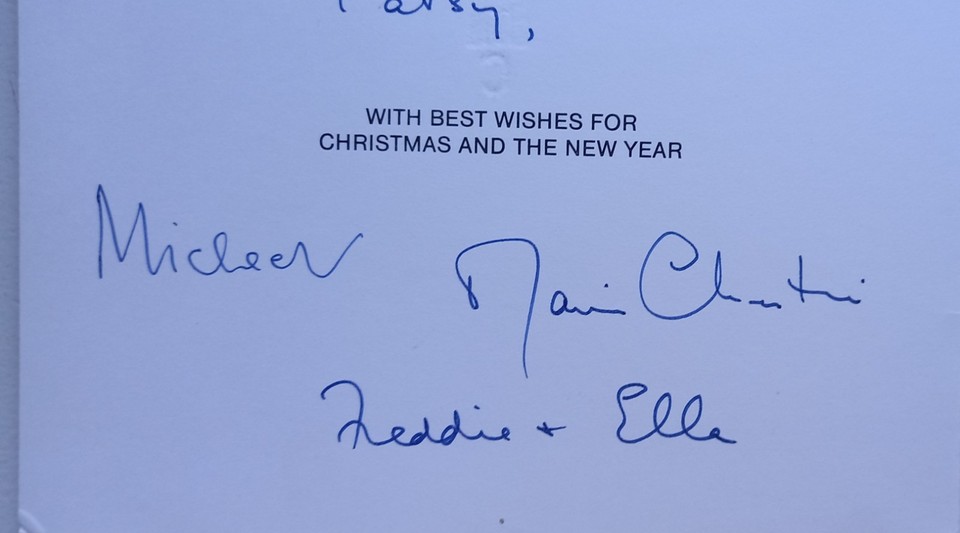 Patsy,
WITH BEST WISHES FOR
CHRISTMAS AND THE NEW YEAR
Michael Marie Christine
Freddie + Ella